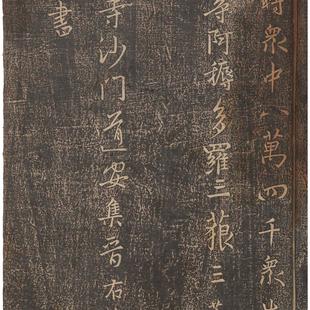 時眾中八萬四千眾生
等阿耨多羅三藐三菩
寺沙門道安集晉右
書